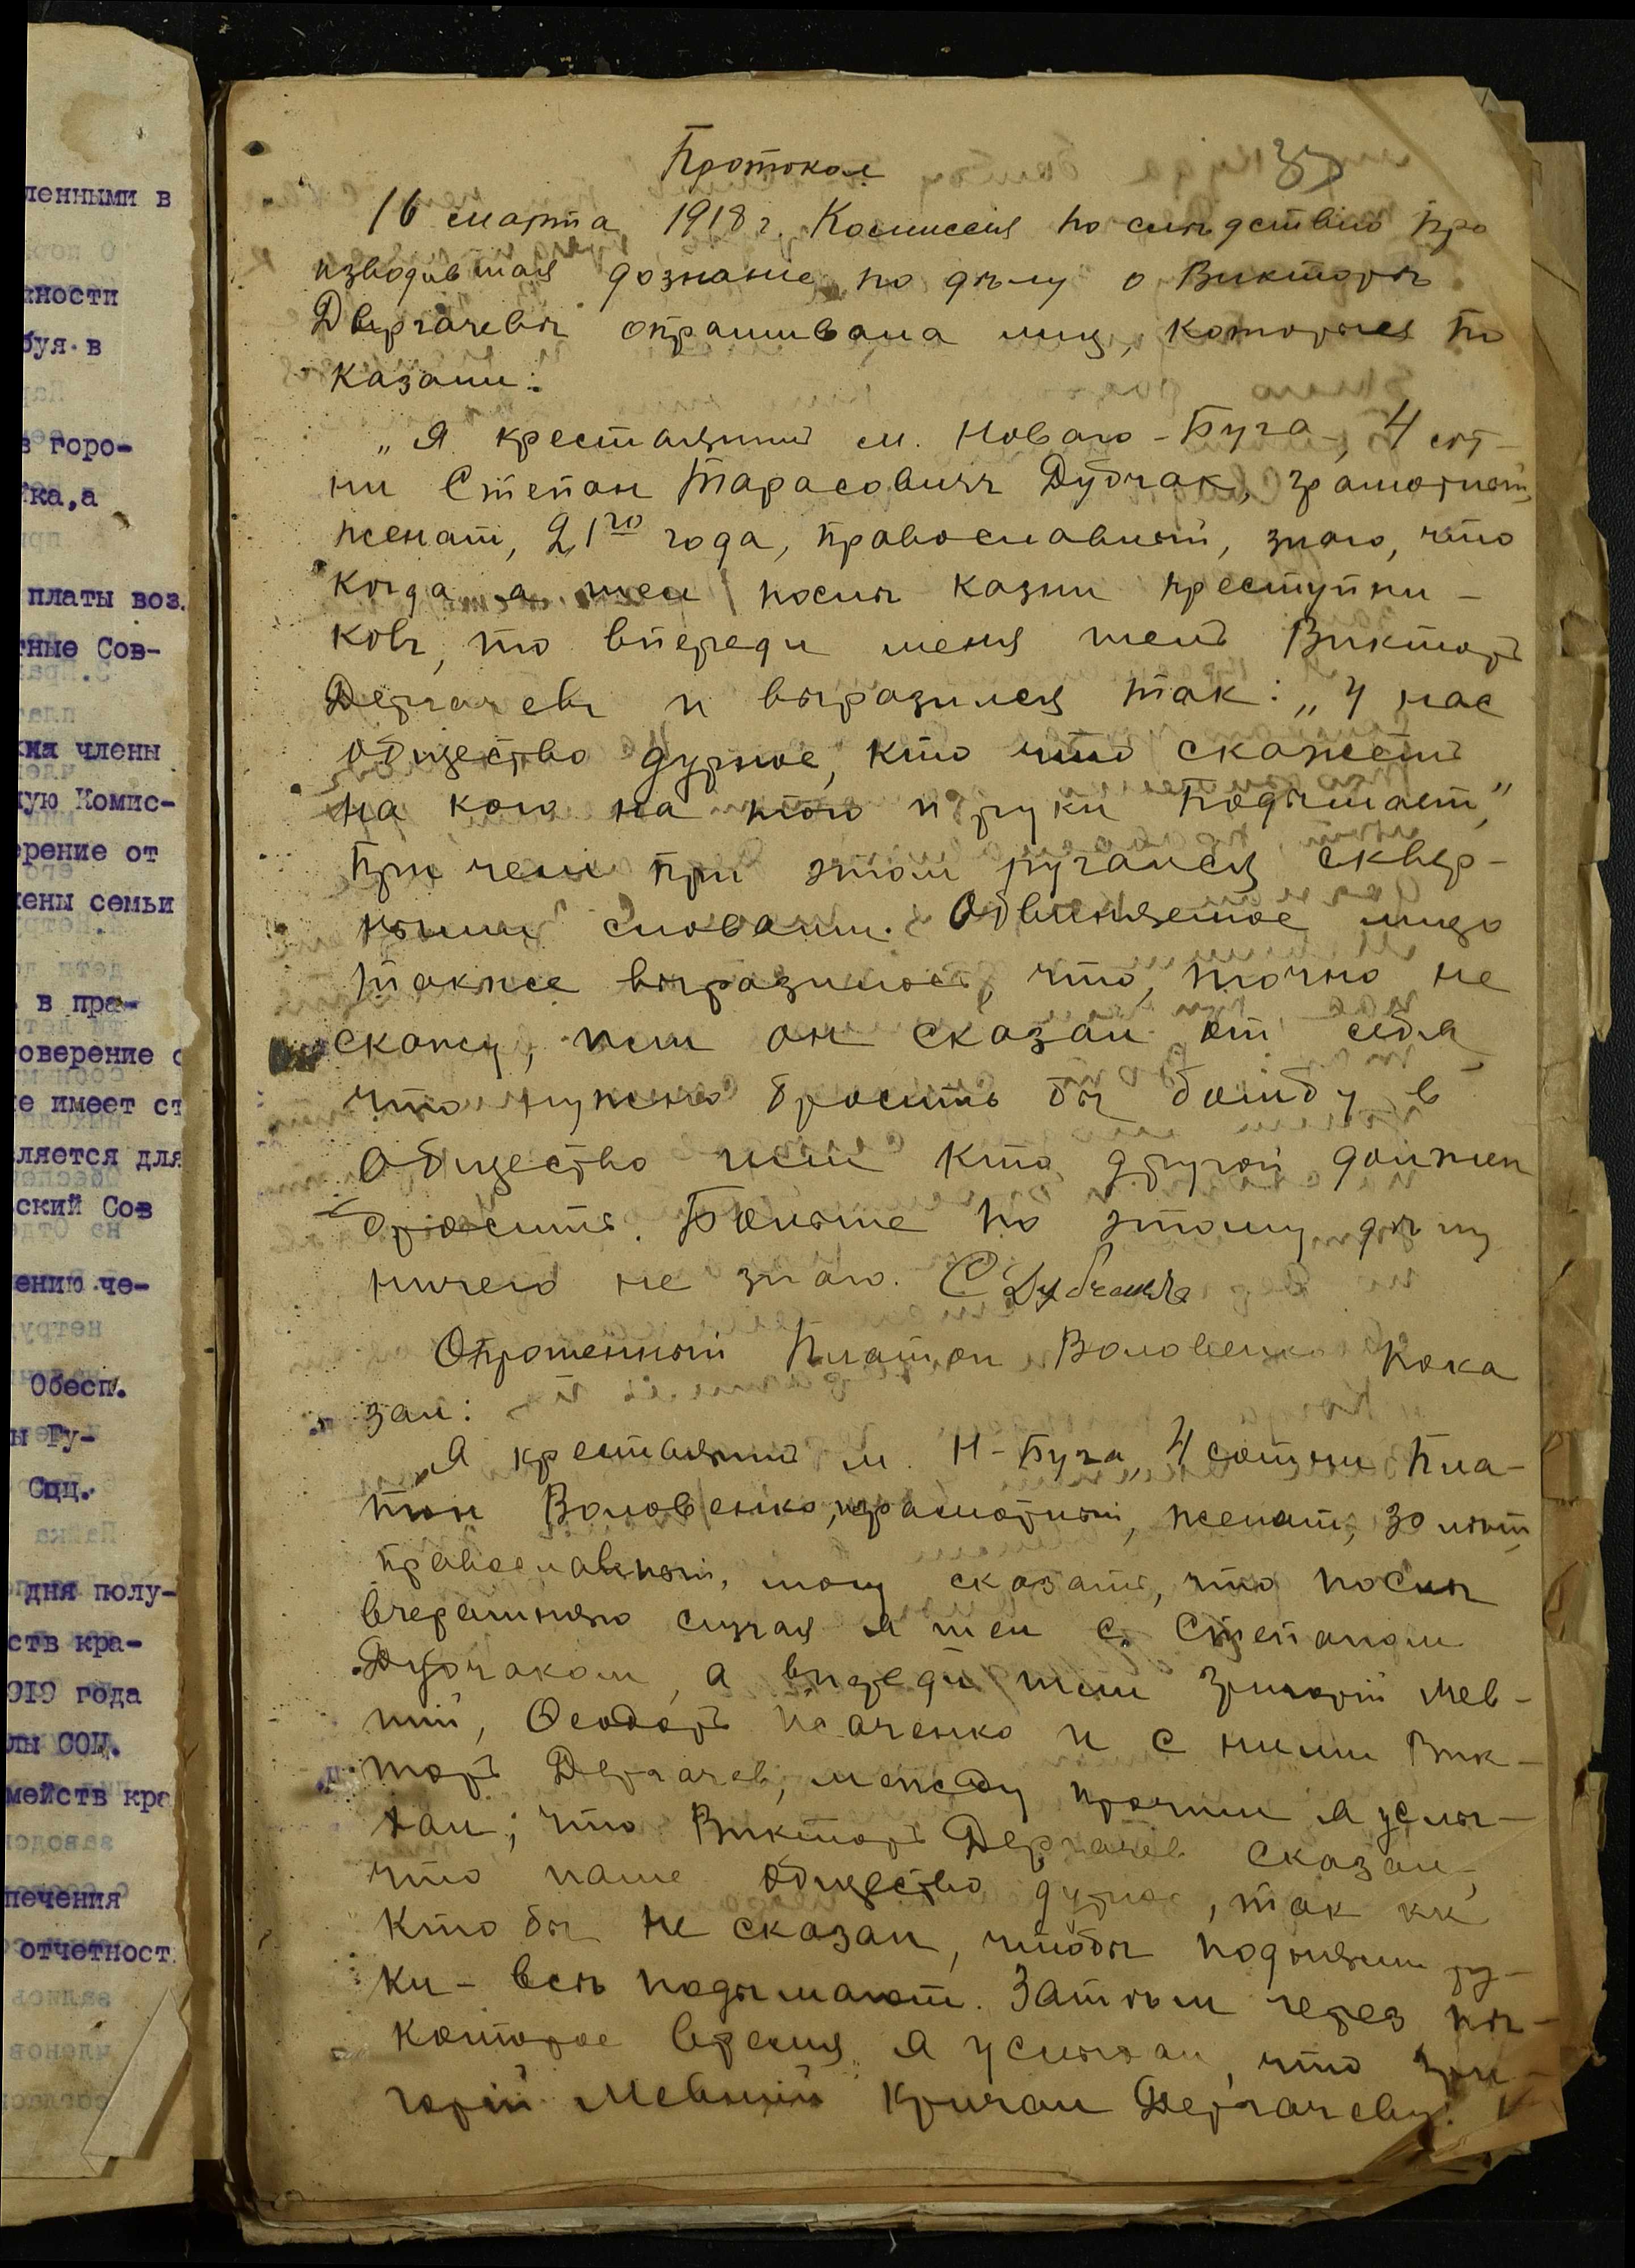 ленными в
жности
буя в
в горо-
тка, а
платы воз.
тные Сов-
члены
кую Комис-
ерение от
лены семьи
в пра-
товерение о
не имеет ст
вляется для
ский Сов
ению че-
Обесп.
ы Гу-
Соц.
дня полу-
ств кра-
1919 года
лы СОЦ.
мейств кра
печения
отчетност
Протокол
16 марта 1918 г. Комиссия по слѣдствію про
изводившая дознание по дѣлу о Викторѣ
Дергачевѣ опрашивала лиц, которыя по
казали:
„Я крестьянинъ м. Новаго-Буга, 4 сот-
ни Степан Тарасовичъ Дубчак, грамотный,
женат, 21го года, православный, знаю, что
когда я шел послѣ казни преступни-
ковъ, то впереди меня шелъ Викторъ
Дергачевъ и выразился так: „У нас
общество дурное, кто что скажетъ
на кого на того и руки подымает,"
при чем при этом ругался сквер-
ными словами. Обвиняемое лицо
также выразилось, что, точно не
скажу, или он сказал от себя
что нужно бросить бы бомбу в
общество или кто другой должен
бросить. Больше по этому дѣлу
ничего не знаю. С Дубчакъ
Опрошенный Платон Воловенко пока
зал:
„Я крестьянинъ м. Н-Буга, 4 сотни Пла-
тон Воловенко, грамотный, женат, 30 лѣт,
православный, могу сказать, что послѣ
вчерашняго случая я шел с Степаном
Дубчаком, а впереди шли Григорій Мев-
шій, Ѳеодоръ Исаченко и с ними Вик-
торъ Дергачев, между прочим я услы-
хал, что Викторъ Дергачев сказал,
что наше общество дурное, так как
кто бы не сказал, чтобы подняли ру-
ки - всѣ подымают. Затѣм через нѣ-
которое время я услыхал, что Гри-
горій Мевшій кричал Дергачеву: